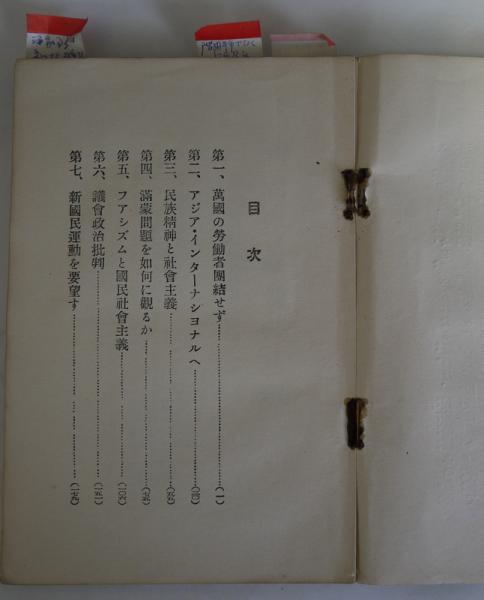 目次
第一、萬國の勞働者團結せず……(一)
第二、アジア・インターナシヨナルへ……(三四)
第三、民族精神と社會主義……(五五)
第四、滿蒙問題を如何に觀るか……(七五)
第五、フアシズムと國民社會主義……(一〇六)
第六、議會政治批判……(一五一)
第七、新國民運動を要望す……(一七九)